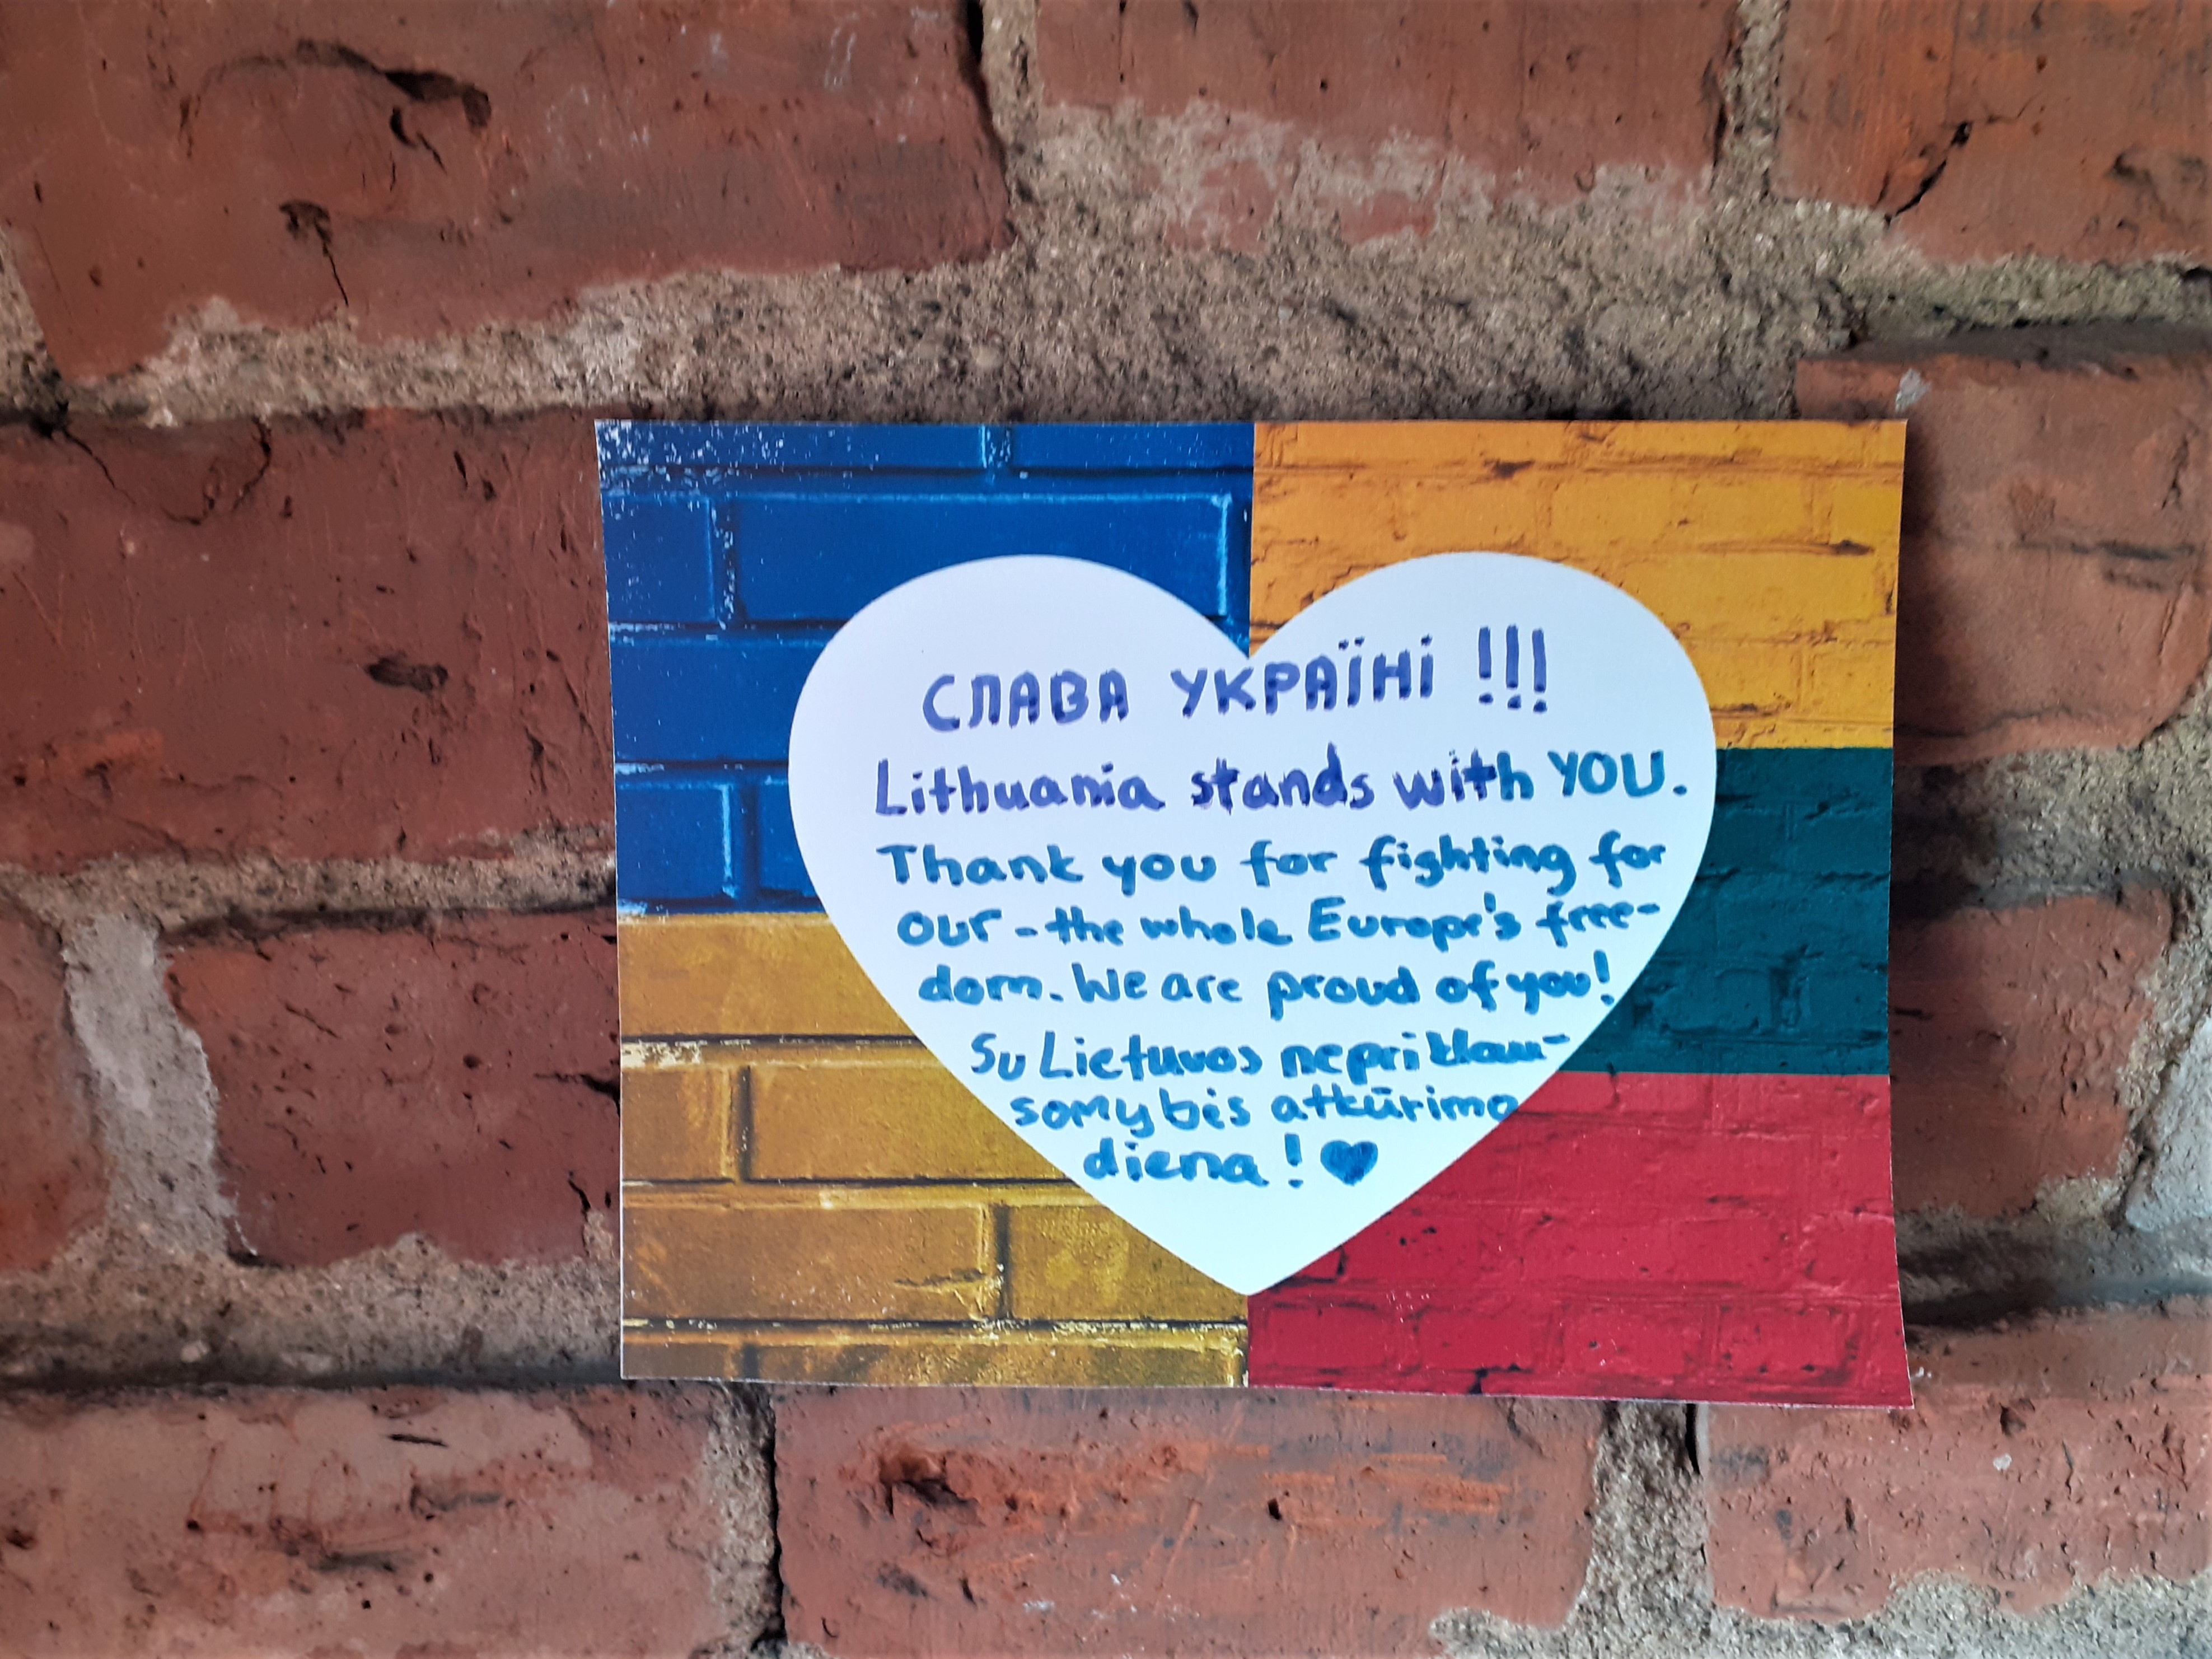 СЛАВА УКРАЇНІ !!!
Lithuania stands with YOU.
Thank you for fighting for
our - the whole Europe's free-
dom. We are proud of you!
Su Lietuvos nepriklau-
somybės atkūrimo
diena! ♥